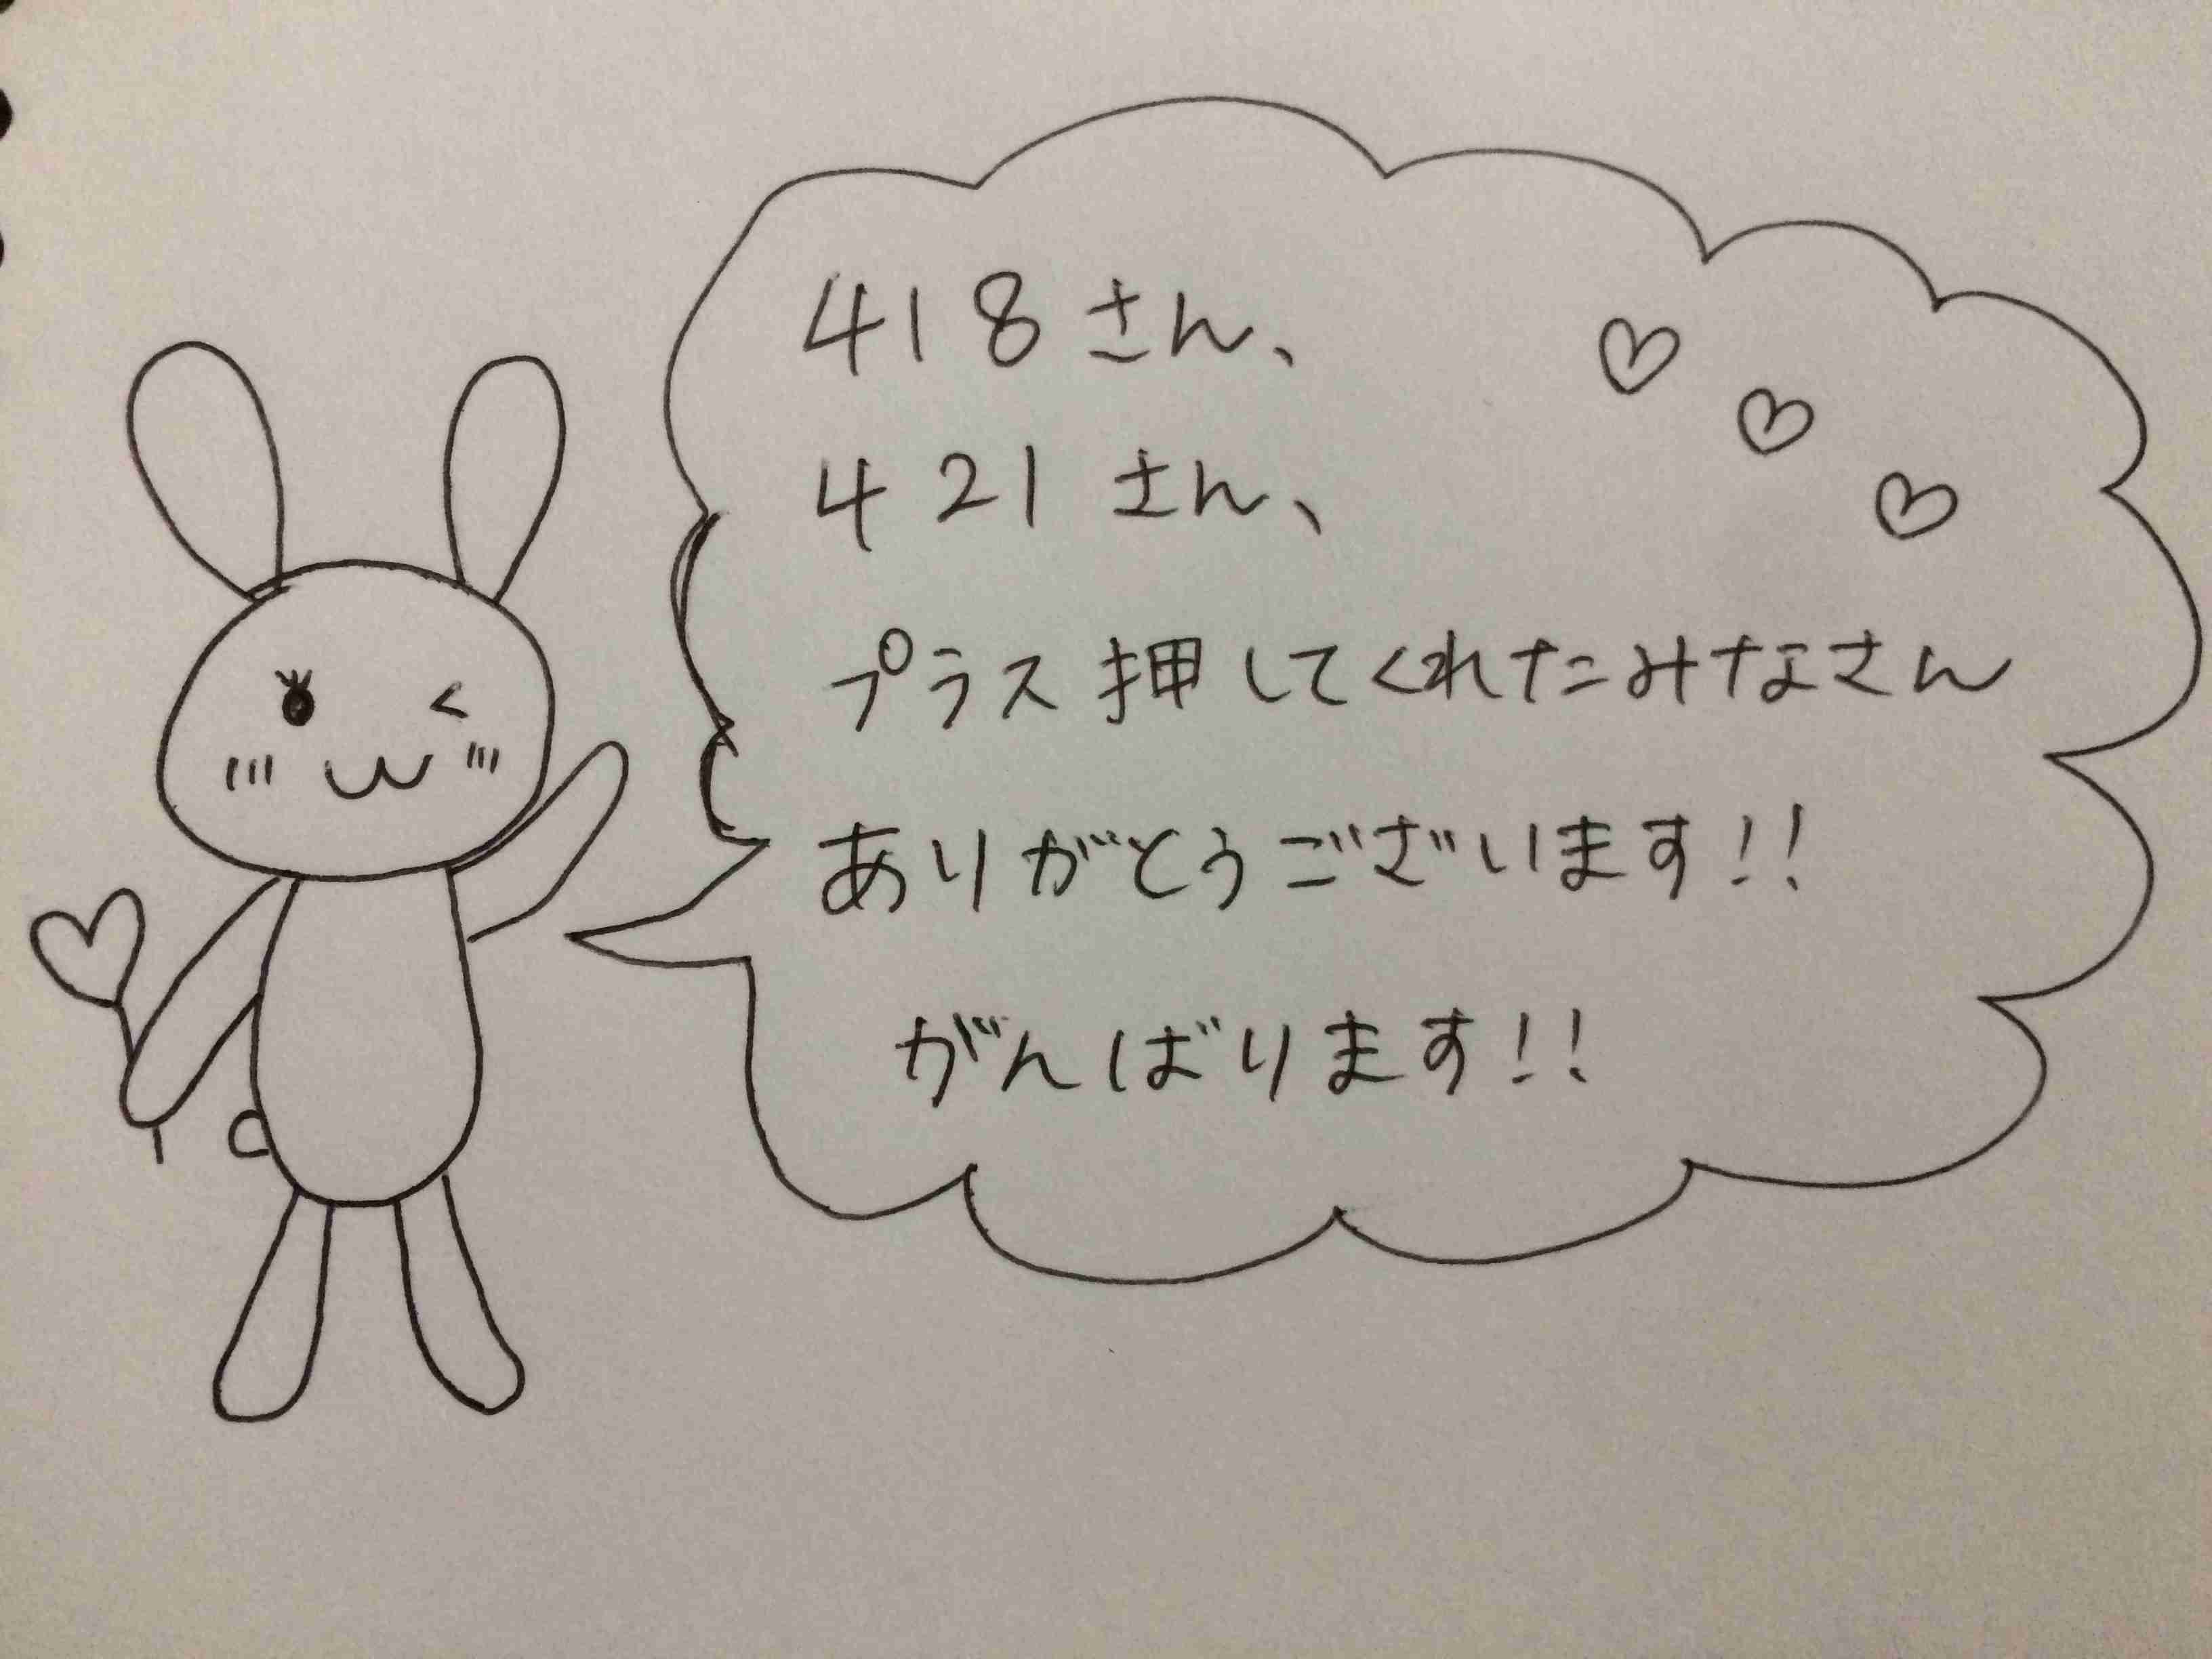 418さん、
421さん、
プラス押してくれたみなさん
ありがとうございます!!
がんばります!!